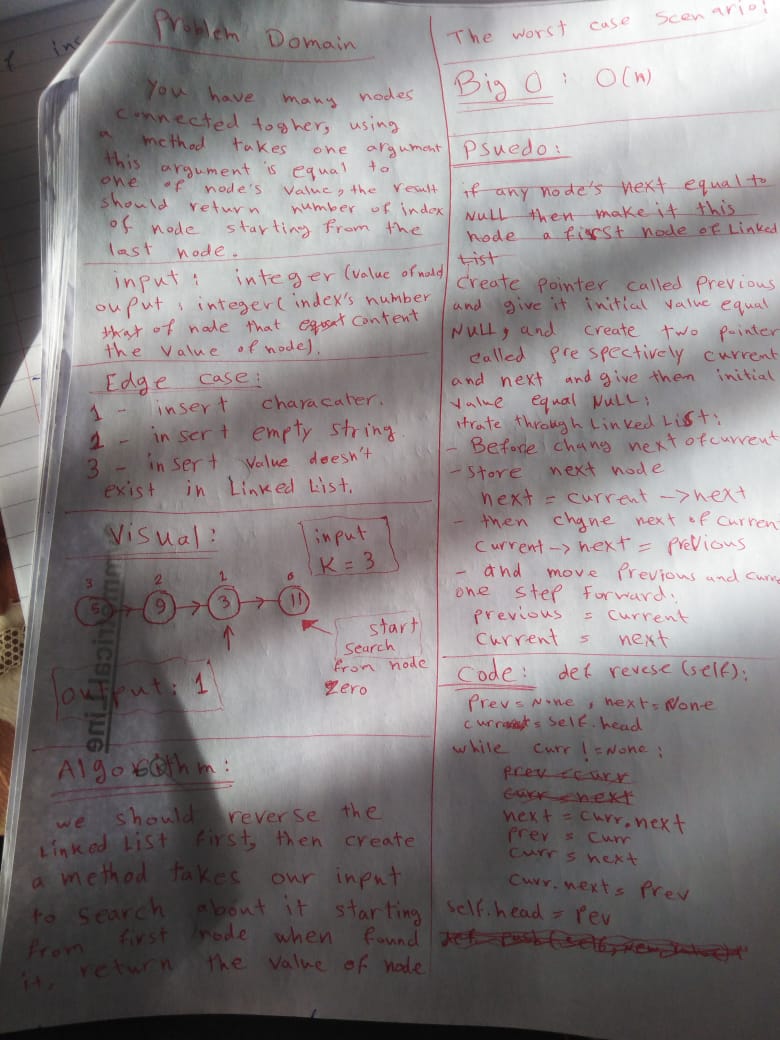 Problem Domain
You have many nodes
connected togher, using
a method takes one argument
this argument is equal to
one of node's value, the result
should return number of index
of node starting from the
last node.
input: integer (value of node)
ouput: integer( index's number
that of node that content
the value of node).
Edge case:
1 - insert characater.
2 - insert empty string.
3 - insert value doesn't
exist in Linked List.
Visual:
input
K = 3
3 2 1 0
5 → 9 → 3 → 11
start
search
from node
zero
output: 1
Algorithm:
we should reverse the
Linked List first, then create
a method takes our input
to search about it starting
from first node when found
it, return the value of node
The worst case scenario:
Big O : O(n)
Psuedo:
if any node's next equal to
NULL then make it this
node a first node of Linked
List
Create pointer called Previous
and give it initial value equal
NULL, and create two pointer
called prespectively current
and next and give them initial
value equal NULL;
itrate through Linked List:
- Before chang next of current
- store next node
next = current -> next
- then chgne next of curren
current -> next = previous
- and move previous and curre
one step forward:
previous = current
current = next
Code: def revese (self):
Prev = None , next = None
current = self.head
while curr != None :
prev = curr
curr = next
next = curr.next
Prev = curr
curr = next
curr.next = prev
self.head = Pev